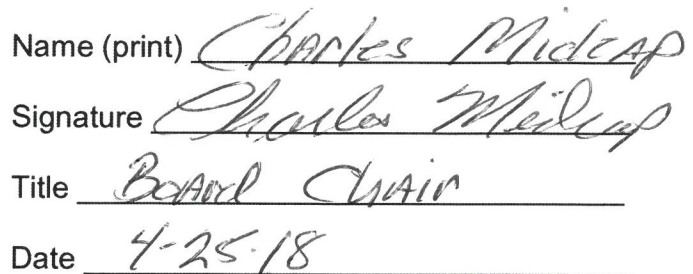 Name (print) Charles Midcap
Signature Charles Midcap
Title Board Chair
Date 4-25-18